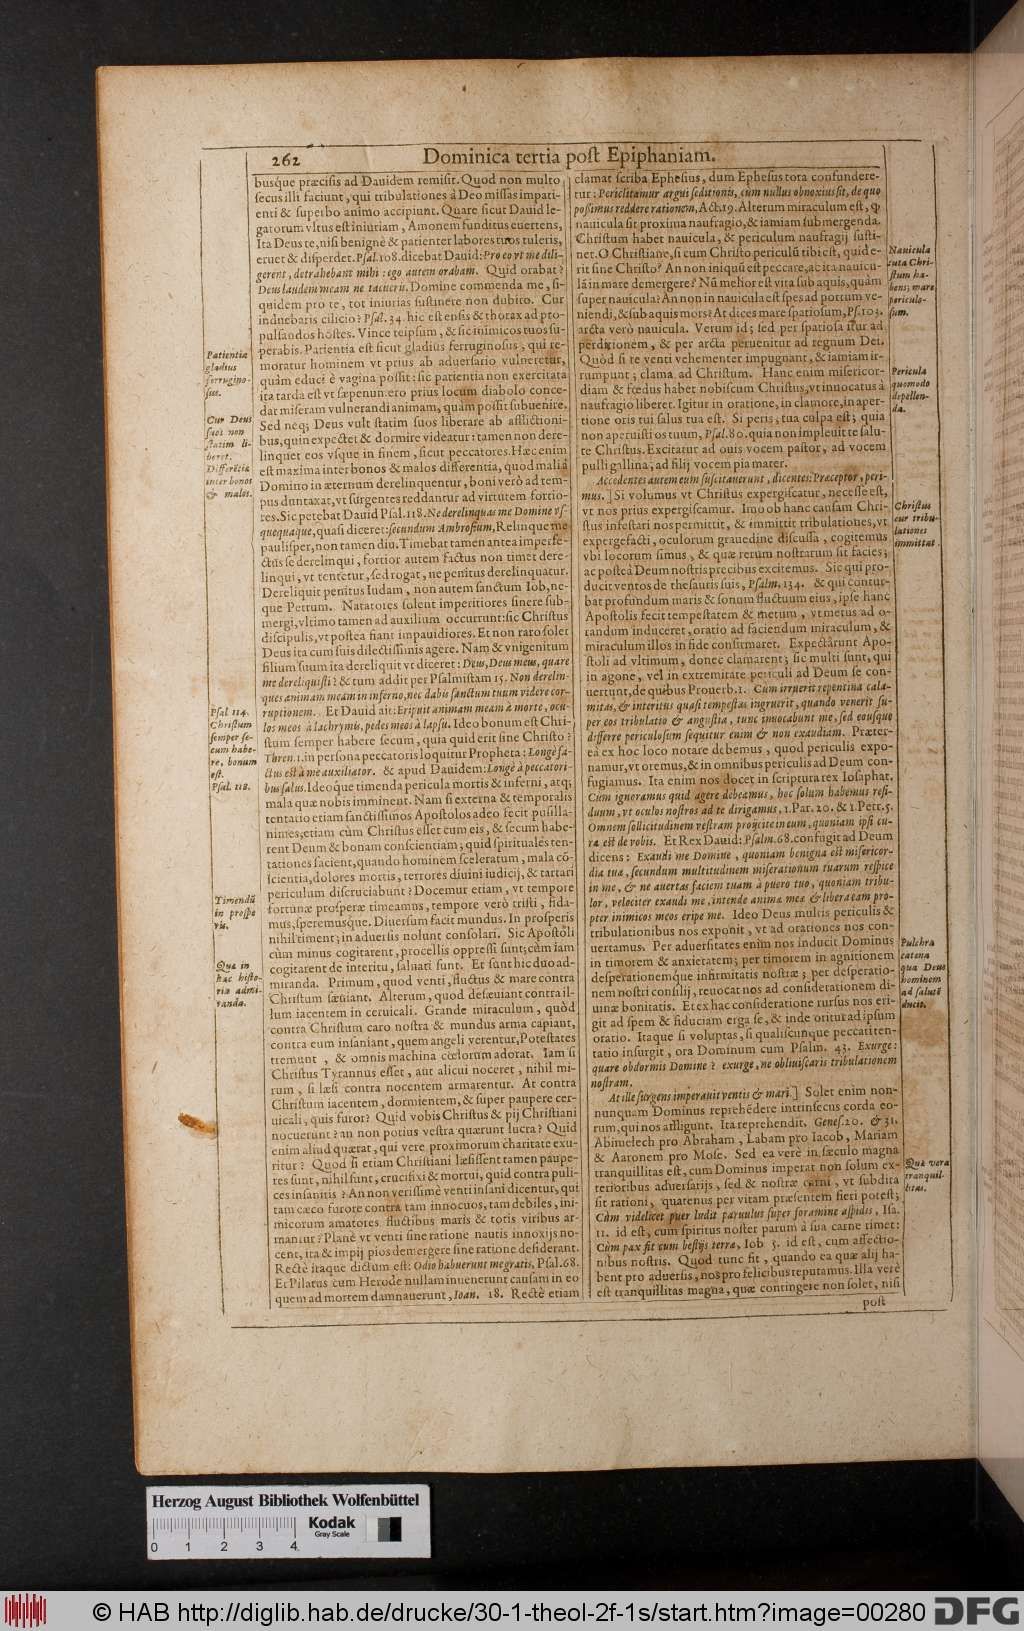 262
Dominica tertia post Epiphaniam.
busque præcisis ad Dauidem remisit. Quod non multo
secus illi faciunt, qui tribulationes à Deo missas impati-
enti & superbo animo accipiunt. Quare sicut Dauid le-
gatorum vltus est iniuriam, Amonem funditus euertens,
Ita Deus te, nisi benignè & patienter labores tuos tuleris,
eruet & disperdet. Psal. 108. dicebat Dauid: Pro eo vt me dili-
gerent, detrahebant mihi: ego autem orabam. Quid orabat?
Deus laudem meam ne tacueris. Domine commenda me, si-
quidem pro te, tot iniurias sustinere non dubito. Cur
induebaris cilicio? Psal. 34. hic est ensis & thorax ad pro-
pulsandos hostes. Vince teipsum, & sic inimicos tuos su-
perabis. Patientia est sicut gladius ferruginosus, qui re-
moratur hominem vt prius ab aduersario vulneretur,
quàm educi è vagina possit: sic patientia non exercitata
ita tarda est vt sæpenumero prius locum diabolo conce-
dat miseram vulnerandi animam, quàm possit subuenire.
Sed neq; Deus vult statim suos liberare ab afflictioni-
bus, quin expectet & dormire videatur: tamen non dere-
linquet eos vsque in finem, sicut peccatores. Hæc enim
est maxima inter bonos & malos differentia, quod mali à
Domino in æternum derelinquentur, boni verò ad tem-
pus duntaxat, vt surgentes reddantur ad virtutem fortio-
res. Sic petebat Dauid Psal. 118. Ne derelinquas me Domine vs-
quequaque, quasi diceret: secundum Ambrosium, Relinque me
paulisper, non tamen diu. Timebat tamen antea imperfe-
ctus se derelinqui, fortior autem factus non timet dere-
linqui, vt tentetur, sed rogat, ne penitus derelinquatur.
Dereliquit penitus Iudam, non autem sanctum Iob, ne-
que Petrum. Natatores solent imperitiores sinere sub-
mergi, vltimo tamen ad auxilium occurrunt: sic Christus
discipulis, vt postea fiant impauidiores. Et non raro solet
Deus ita cum suis dilectissimis agere. Nam & vnigenitum
filium suum ita dereliquit vt diceret: Deus, Deus meus, quare
me dereliquisti: & tum addit per Psalmistam 15. Non derelin-
ques animam meam in inferno, nec dabis sanctum tuum videre cor-
ruptionem. Et Dauid ait: Eripuit animam meam à morte, ocu-
los meos à lachrymis, pedes meos à lapsu. Ideo bonum est Chri-
stum semper habere secum, quia quid erit sine Christo?
Thren. 1. in persona peccatoris loquitur Propheta: Longè fa-
ctus est à me auxiliator. & apud Dauidem: Longè à peccatori-
bus salus. Ideoque timenda pericula mortis & inferni, atq;
mala quæ nobis imminent. Nam si externa & temporalis
tentatio etiam sanctissimos Apostolos adeo fecit pusilla-
nimes, etiam cùm Christus esset cum eis, & secum habe-
rent Deum & bonam conscientiam; quid spirituales ten-
tationes facient, quando hominem sceleratum, mala cō-
scientia, dolores mortis, terrores diuini iudicij, & tartari
periculum discruciabunt? Docemur etiam, vt tempore
fortunæ prosperæ timeamus, tempore verò tristi, fida-
mus, speremusque. Diuersum facit mundus. In prosperis
nihil timent; in aduersis nolunt consolari. Sic Apostoli
cùm minus cogitarent, procellis oppressi sunt; cùm iam
cogitarent de interitu, saluati sunt. Et sunt hic duo ad-
miranda. Primum, quod venti, fluctus & mare contra
Christum sæuiant. Alterum, quod desæuiant contra il-
lum iacentem in ceruicali. Grande miraculum, quòd
contra Christum caro nostra & mundus arma capiant,
contra eum insaniant, quem angeli verentur, Potestates
tremunt, & omnis machina cœlorum adorat. Iam si
Christus Tyrannus esset, aut alicui noceret, nihil mi-
rum, si læsi contra nocentem armarentur. At contra
Christum iacentem, dormientem, & super paupere cer-
uicali, quis furor? Quid vobis Christus & pij Christiani
nocuerunt? an non potius vestra quærunt lucra? Quid
enim aliud quærat, qui vere proximorum charitate exu-
ritur? Quod si etiam Christiani læsissent tamen paupe-
res sunt, nihil sunt, crucifixi & mortui, quid contra puli-
ces insanitis? An non verissimè venti insani dicentur, qui
tam cæco furore contra tam innocuos, tam debiles, ini-
micorum amatores fluctibus maris & totis viribus ar-
mantur? Planè vt venti sine ratione nautis innoxijs no-
cent, ita & impij pios demergere sine ratione desiderant.
Rectè itaque dictum est: Odio habuerunt me gratis, Psal. 68.
Et Pilatus cum Herode nullam inuenerunt causam in eo
quem ad mortem damnauerunt, Ioan. 18. Rectè etiam
Patientia
gladius
ferrugino-
sus.
Cur Deus
suos non
statim li-
beret.
Differētia
inter bonos
& malos.
Psal 114.
Christum
semper se-
cum habe-
re, bonum
est.
Psal. 118.
Timendū
in prospe
ris.
Quæ in
hac histo-
ria admi-
randa.
clamat scriba Ephesius, dum Ephesus tota confundere-
tur: Periclitamur argui seditionis, cum nullus obnoxius sit, de quo
possimus reddere rationem, Act. 19. Alterum miraculum est, q
nauicula sit proxima naufragio, & iamiam submergenda.
Christum habet nauicula, & periculum naufragij susti-
net. O Christiane, si cum Christo periculū tibi est, quid e-
rit sine Christo? An non iniquū est peccare, ac ita nauicu-
lā in mare demergere? Nū melior est vita sub aquis, quàm
super nauicula? An non in nauicula est spes ad portum ve-
niendi, & sub aquis mors? At dices mare spatiosum, Ps. 103.
arcta verò nauicula. Verum id; sed per spatiosa itur ad
perditionem, & per arcta peruenitur ad regnum Dei.
Quòd si te venti vehementer impugnant, & iamiam ir-
rumpunt; clama ad Christum. Hanc enim misericor-
diam & fœdus habet nobiscum Christus, vt inuocatus à
naufragio liberet. Igitur in oratione, in clamore, in aper-
tione oris tui salus tua est. Si peris, tua culpa est; quia
non aperuisti os tuum, Psal. 80. quia non impleuit te salu-
te Christus. Excitatur ad ouis vocem pastor, ad vocem
pulli gallina, ad filij vocem pia mater.
Accedentes autem eum suscitauerunt, dicentes: Præceptor, peri-
mus.] Si volumus vt Christus expergiscatur, necesse est,
vt nos prius expergiscamur. Imo ob hanc causam Chri-
stus infestari nos permittit, & immittit tribulationes, vt
expergefacti, oculorum grauedine discussa, cogitemus
vbi locorum simus, & quæ rerum nostrarum sit facies;
ac postea Deum nostris precibus excitemus. Sic qui pro-
ducit ventos de thesauris suis, Psalm. 134. & qui contur-
bat profundum maris & sonum fluctuum eius, ipse hanc
Apostolis fecit tempestatem & metum, vt metus ad o-
randum induceret, oratio ad faciendum miraculum, &
miraculum illos in fide confirmaret. Expectârunt Apo-
stoli ad vltimum, donec clamarent; sic multi sunt, qui
in agone, vel in extremitate periculi ad Deum se con-
uertunt, de quibus Prouerb. 1. Cùm irruerit repentina cala-
mitas, & interitus quasi tempestas ingruerit, quando venerit su-
per eos tribulatio & angustia, tunc inuocabunt me, sed eousque
differre periculosum sequitur enim & non exaudiam. Præter-
ea ex hoc loco notare debemus, quod periculis expo-
namur, vt oremus, & in omnibus periculis ad Deum con-
fugiamus. Ita enim nos docet in scriptura rex Iosaphat.
Cùm ignoramus quid agere debeamus, hoc solum habemus resi-
duum, vt oculos nostros ad te dirigamus, 1. Par. 20. & 1. Petr. 5.
Omnem sollicitudinem vestram proijcite in eum, quoniam ipsi cu-
ra est de vobis. Et Rex Dauid: Psalm. 68. confugit ad Deum
dicens: Exaudi me Domine, quoniam benigna est misericor-
dia tua, secundum multitudinem miserationum tuarum respice
in me, & ne auertas faciem tuam à puero tuo, quoniam tribu-
lor, velociter exaudi me, intende animæ meæ & libera eam pro-
pter inimicos meos eripe me. Ideo Deus multis periculis &
tribulationibus nos exponit, vt ad orationes nos con-
uertamus. Per aduersitates enim nos inducit Dominus
in timorem & anxietatem; per timorem in agnitionem
desperationemque infirmitatis nostræ; per desperatio-
nem nostri consilij, reuocat nos ad considerationem di-
uinæ bonitatis. Et ex hac consideratione rursus nos eri-
git ad spem & fiduciam erga se, & inde oritur ad ipsum
oratio. Itaque si voluptas, si qualiscunque peccati ten-
tatio insurgit, ora Dominum cum Psalm. 43. Exurge:
quare obdormis Domine? exurge, ne obliuiscaris tribulationem
nostram.
At ille surgens imperauit ventis & mari.] Solet enim non-
nunquam Dominus reprehēdere intrinsecus corda eo-
rum, qui nos affligunt. Ita reprehendit. Genes. 20. & 31.
Abimelech pro Abraham, Labam pro Iacob, Mariam
& Aaronem pro Mose. Sed ea verè in sæculo magna
tranquillitas est, cum Dominus imperat non solum ex-
terioribus aduersarijs, sed & nostræ carni, vt subdita
sit rationi, quatenus per vitam præsentem fieri potest;
Cùm videlicet puer ludit paruulus super foramine aspidis, Isa.
11. id est, cum spiritus noster parum à sua carne timet:
Cùm pax sit cum bestijs terræ, Iob 5. id est, cum affectio-
nibus nostris. Quod tunc fit, quando ea quæ alij ha-
bent pro aduersis, nos pro felicibus reputamus. Illa verè
est tranquillitas magna, quæ contingere non solet, nisi
post
Nauicula
tuta Chri-
stum ha-
bens; mare
periculo-
sum.
Pericula
quomodo
depellen-
da.
Christus
cur tribu-
lationes
immittat.
Pulchra
catena
qua Deus
hominem
ad salutē
ducit.
Quæ vera
tranquil-
litas.
Herzog August Bibliothek Wolfenbüttel
Kodak
Gray Scale
0 1 2 3 4
© HAB http://diglib.hab.de/drucke/30-1-theol-2f-1s/start.htm?image=00280 DFG